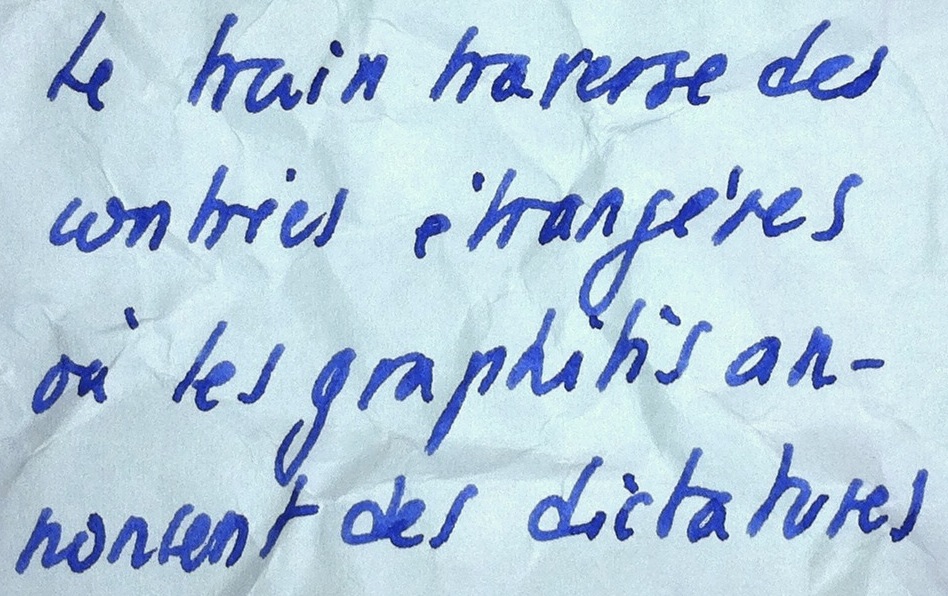 Le train traverse des
contrées étrangères
où les graphitis an-
noncent des dictatures